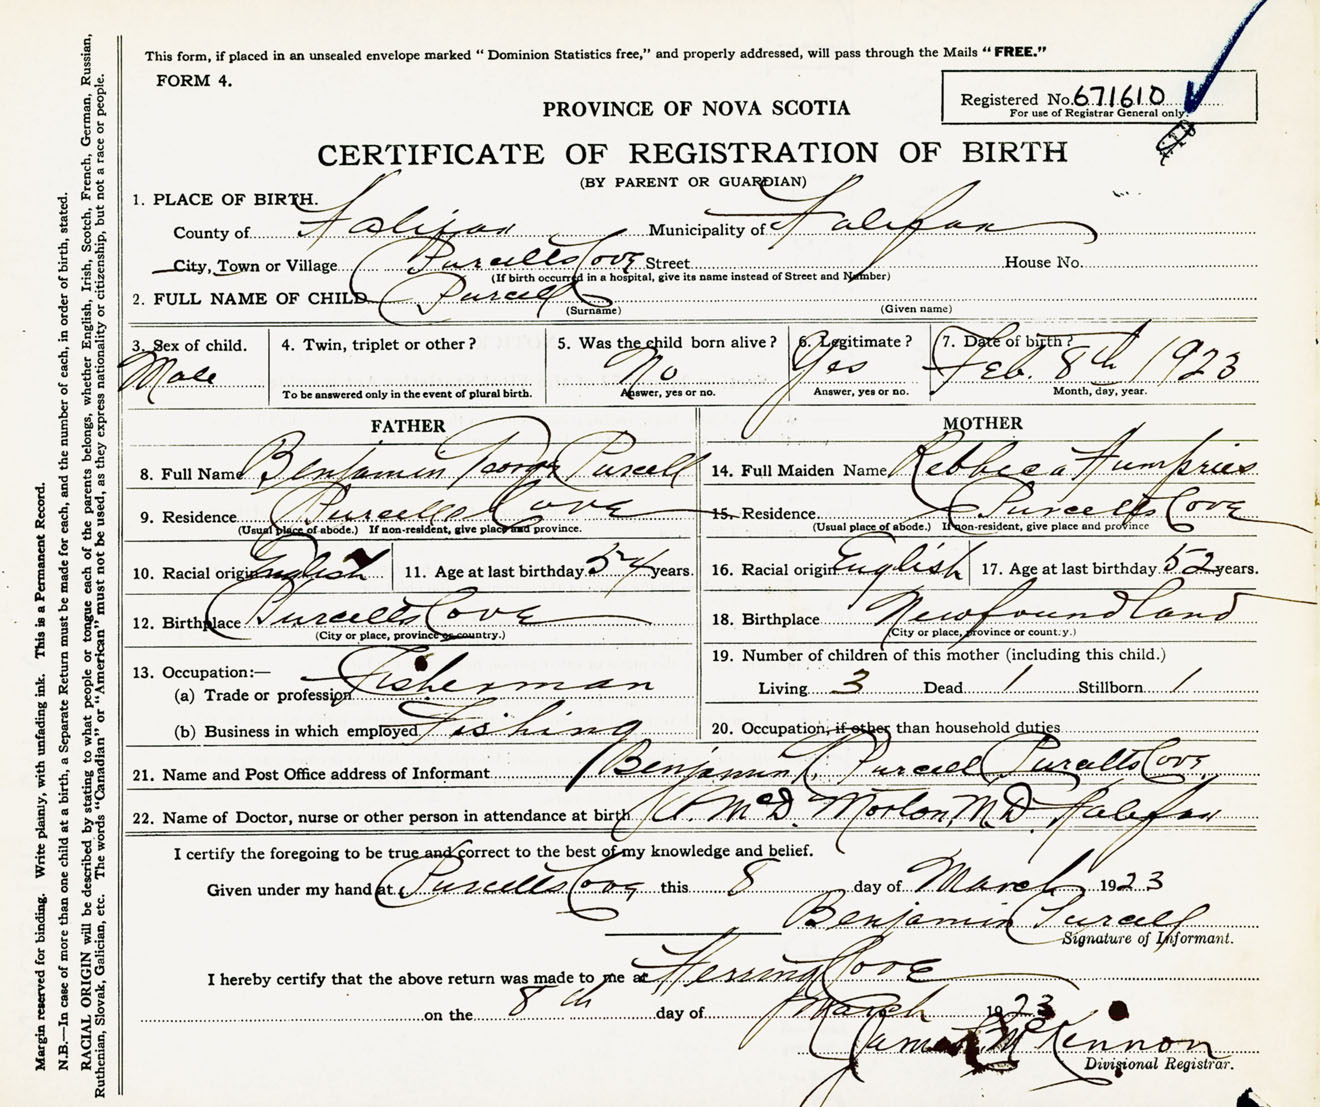 This form, if placed in an unsealed envelope marked “ Dominion Statistics free,” and properly addressed, will pass through the Mails “ FREE.”
FORM 4.
Registered No. 671610
For use of Registrar General only.
PROVINCE OF NOVA SCOTIA
CERTIFICATE OF REGISTRATION OF BIRTH
(BY PARENT OR GUARDIAN)
1. PLACE OF BIRTH.
County of Halifax Municipality of Halifax
City, Town or Village Purcells Cove Street House No.
(If birth occurred in a hospital, give its name instead of Street and Number)
2. FULL NAME OF CHILD Purcell
(Surname) (Given name)
3. Sex of child. 4. Twin, triplet or other ? 5. Was the child born alive ? 6. Legitimate ? 7. Date of birth ?
Male No Yes Feb. 8th 1923
To be answered only in the event of plural birth. Answer, yes or no. Answer, yes or no. Month, day, year.
FATHER
8. Full Name Benjamin George Purcell
9. Residence Purcells Cove
(Usual place of abode.) If non-resident, give place and province.
10. Racial origin English 11. Age at last birthday 54 years.
12. Birthplace Purcells Cove
(City or place, province or country.)
13. Occupation:—
(a) Trade or profession Fisherman
(b) Business in which employed Fishing
MOTHER
14. Full Maiden Name Rebbeca Humpries
15. Residence Purcells Cove
(Usual place of abode.) If non-resident, give place and province
16. Racial origin English 17. Age at last birthday 52 years.
18. Birthplace Newfoundland
(City or place, province or country.)
19. Number of children of this mother (including this child.)
Living 3 Dead 1 Stillborn 1
20. Occupation, if other than household duties
21. Name and Post Office address of Informant Benjamin Purcell Purcells Cove
22. Name of Doctor, nurse or other person in attendance at birth A. McD. Morton, M.D. Halifax
I certify the foregoing to be true and correct to the best of my knowledge and belief.
Given under my hand at Purcells Cove this 8 day of March 1923
Benjamin Purcell
Signature of Informant.
I hereby certify that the above return was made to me at Herring Cove
on the 8th day of March 1923
James McKinnon
Divisional Registrar.
Margin reserved for binding. Write plainly, with unfading ink. This is a Permanent Record.
N.B.—In case of more than one child at a birth, a Separate Return must be made for each, and the number of each, in order of birth, stated.
RACIAL ORIGIN will be described by stating to what people or tongue each of the parents belongs, whether English, Irish, Scotch, French, German, Russian,
Ruthenian, Slovak, Galician, etc. The words “Canadian” or “American” must not be used, as they express nationality or citizenship, but not a race or people.